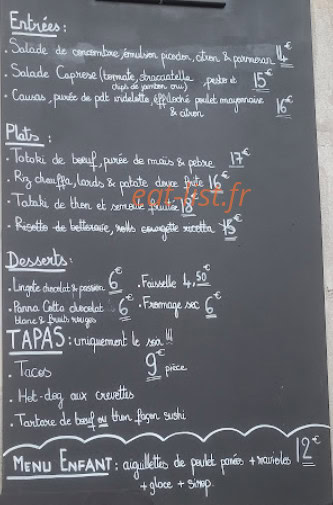 Entrées:
. Salade de concombre, émulsion picodon, citron & parmesan 14€
. Salade Caprese (tomate, stracciatella 15€
chips de jambon cru) pesto
. Causas, purée de pdt vitelotte, effiloché poulet mayonnaise 16€
& citron
Plats:
. Tataki de bœuf, purée de maïs & pebre 17€
. Riz chauffa, lards & patate douce frite 16€
. Tataki de thon et semoule fruitée 18€
eat-list.fr
. Risotto de betterave, rolls courgette ricotta 15€
Desserts:
. Lingote chocolat & passion 6€ . Faisselle 4,50€
. Panna Cotta chocolat 6€ . Fromage sec 6€
blanc & fruits rouges
TAPAS: uniquement le soir!!!
. Tacos 9€ pièce
. Hot-dog aux crevettes
. Tartare de bœuf ou thon façon sushi
MENU ENFANT: aiguillettes de poulet panées + ravioles 12€
+ glace + sirop.